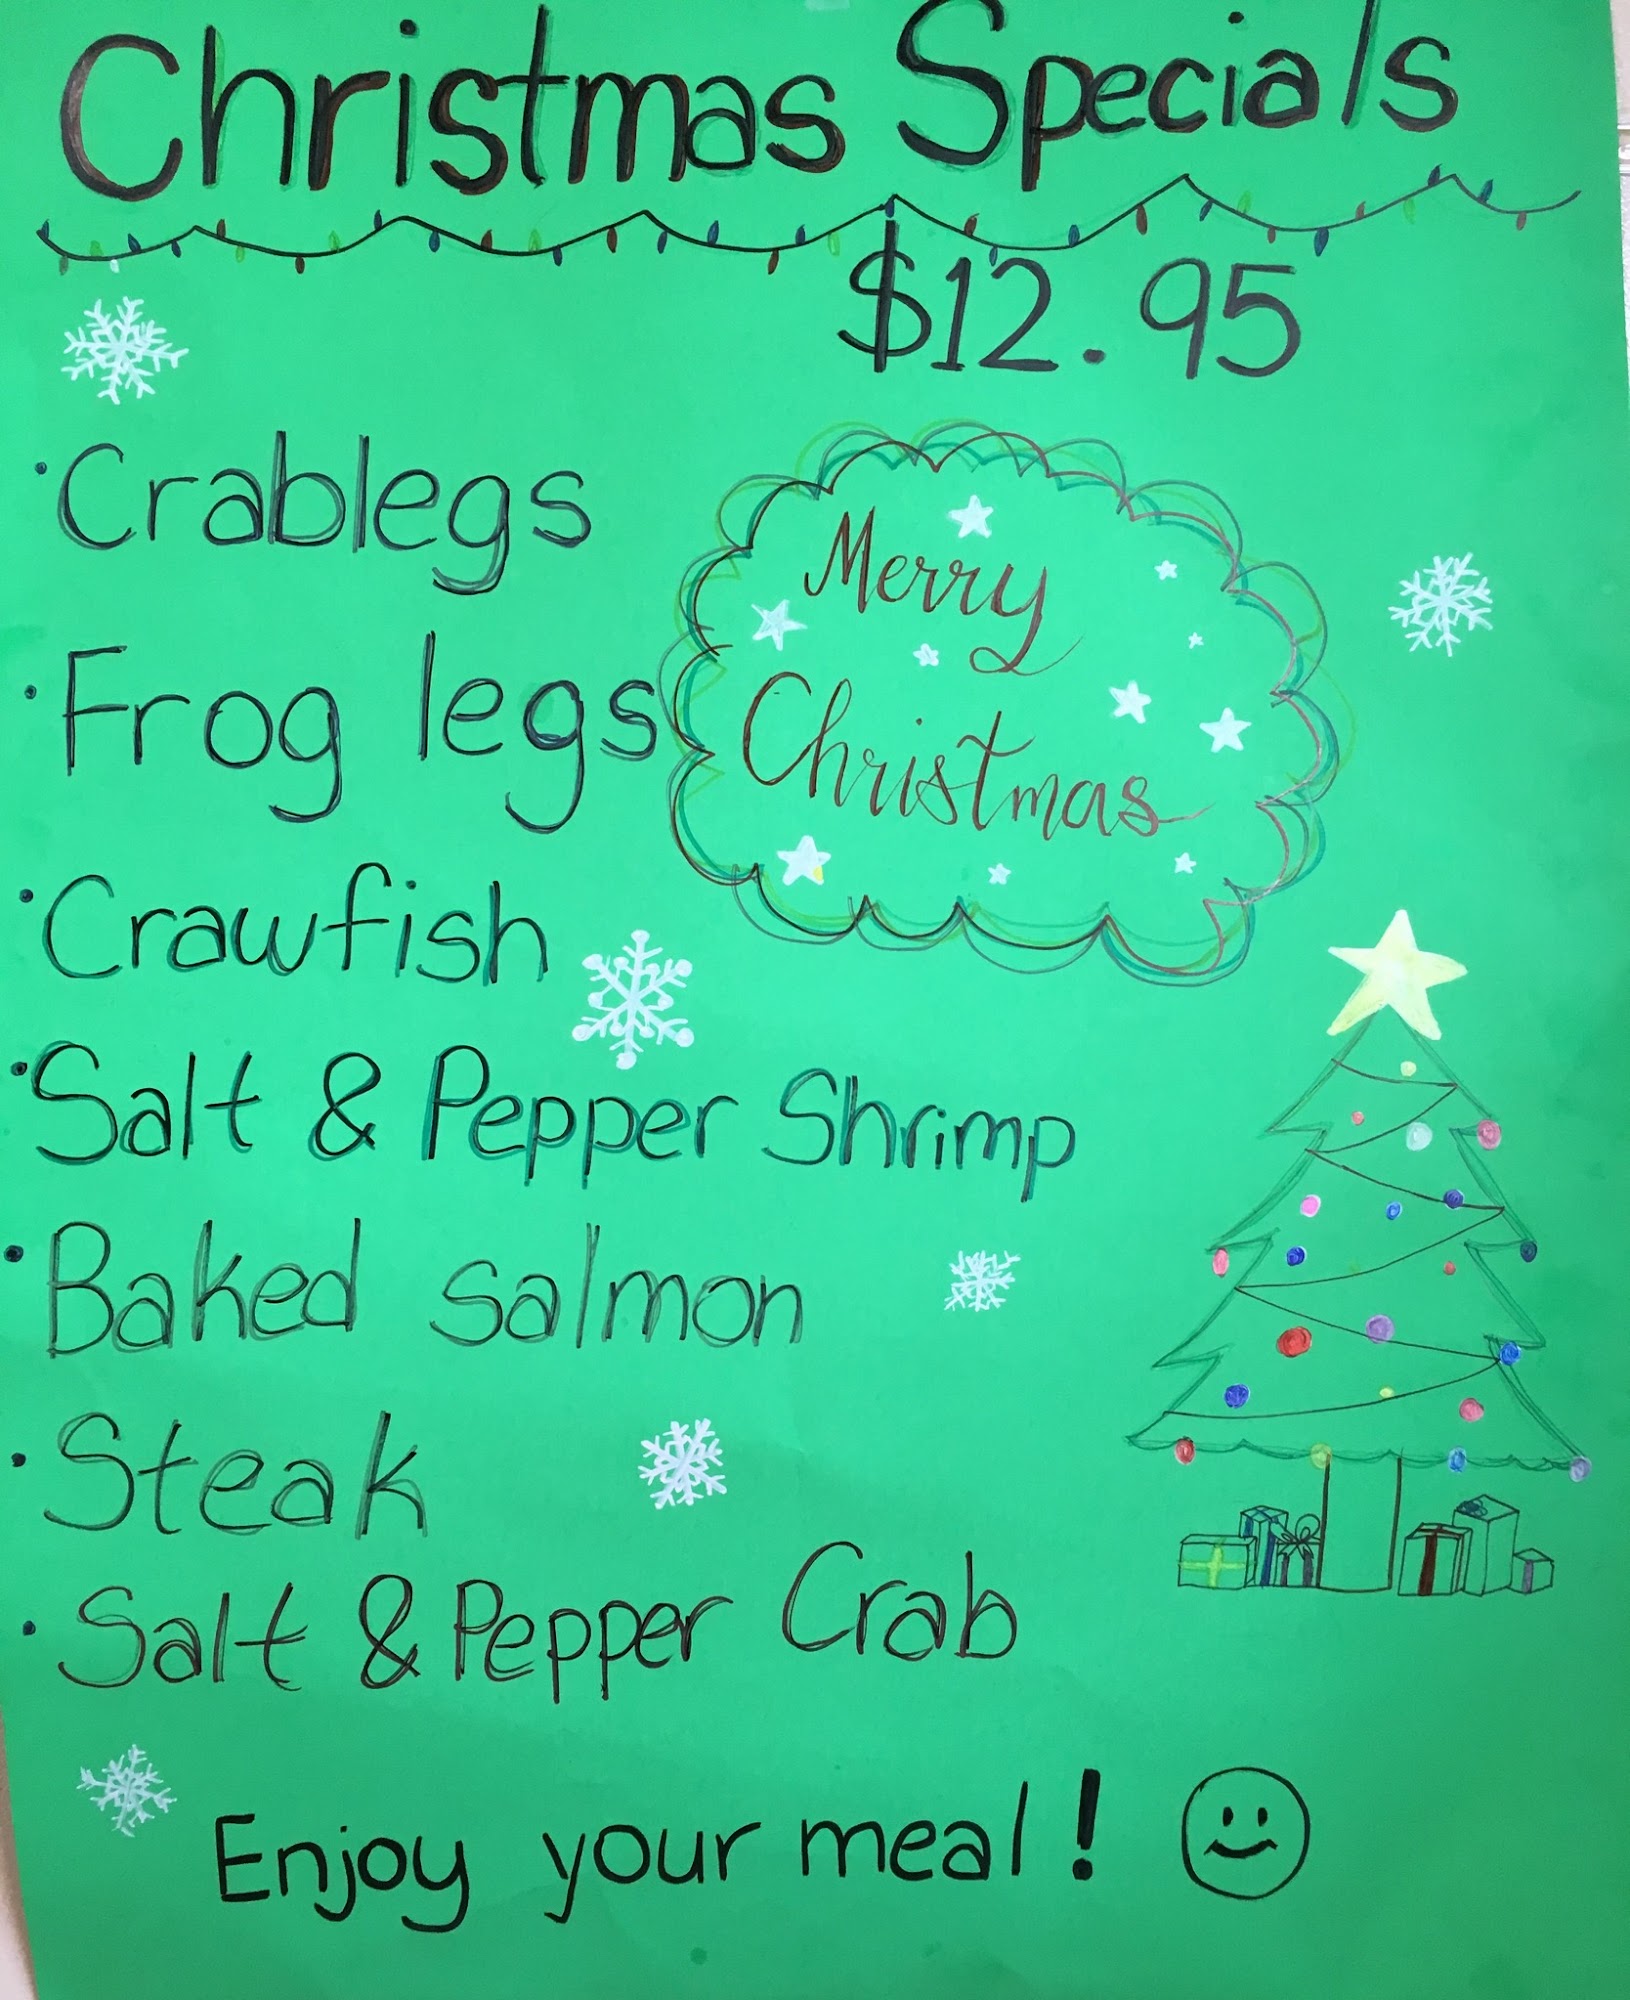 Christmas Specials
$12.95
• Crablegs
• Frog legs
• Crawfish
• Salt & Pepper Shrimp
• Baked salmon
• Steak
• Salt & Pepper Crab
Merry
Christmas
Enjoy your meal!